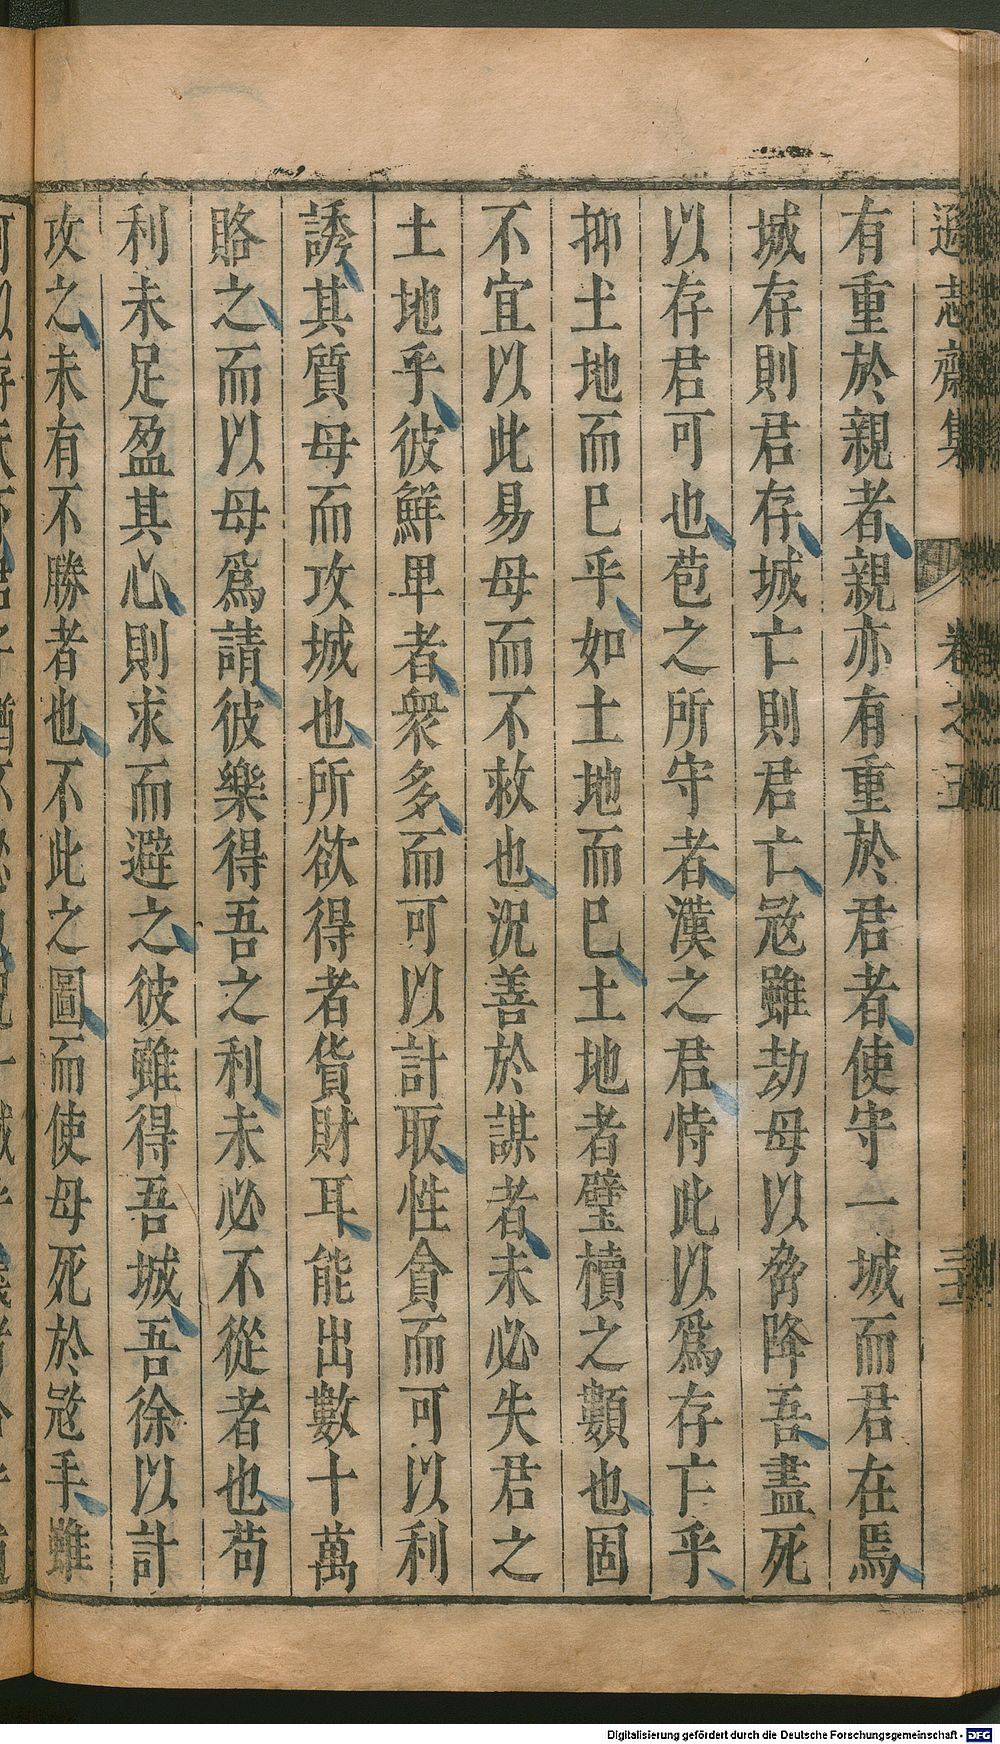 遜志齋集 卷之五 三十一
有重於親者親亦有重於君者使守一城而君在焉
城存則君存城亡則君亡寇雖劫母以脅降吾盡死
以存君可也苞之所守者漢之君恃此以爲存亡乎
抑土地而已乎如土地而已土地者璧櫝之類也固
不宜以此易母而不救也況善於謀者未必失君之
土地乎彼鮮卑者衆多而可以計取性貪而可以利
誘其質母而攻城也所欲得者貨財耳能出數十萬
賂之而以母爲請彼樂得吾之利未必不從者也苟
利未足盈其心則求而避之彼雖得吾城吾徐以計
攻之未有不勝者也不此之圖而使母死於寇手雖
Digitalisierung gefördert durch die Deutsche Forschungsgemeinschaft - DFG